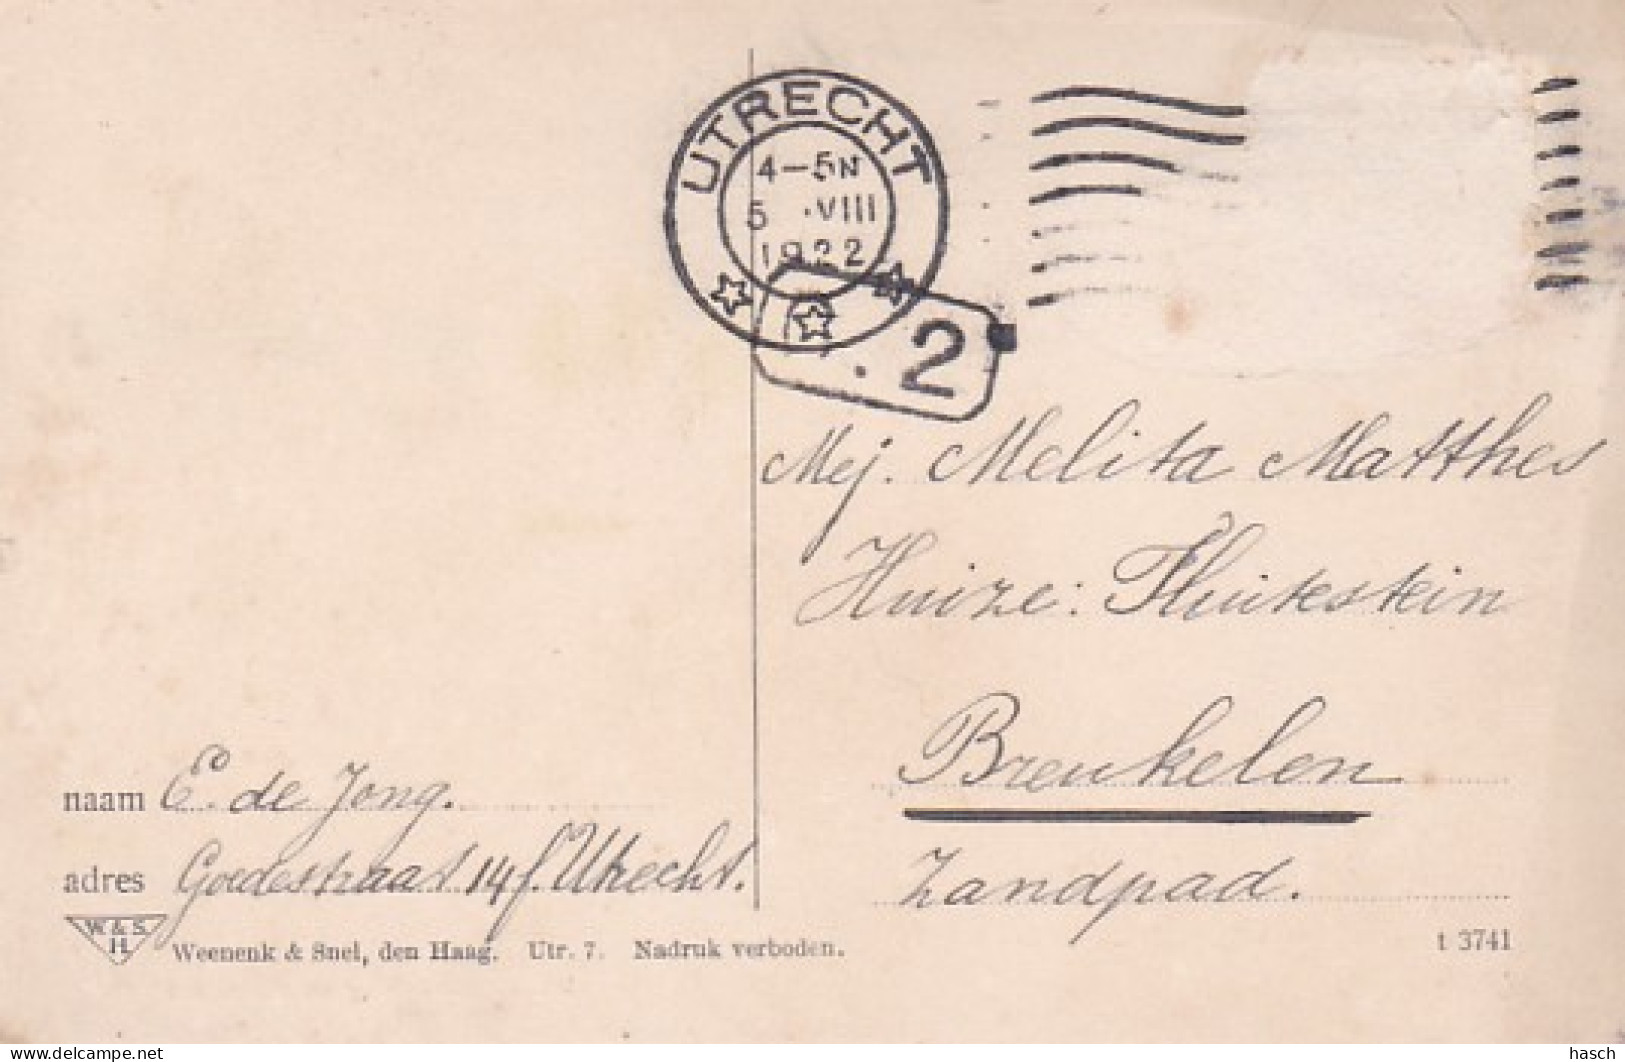 UTRECHT
4-5N
5 ·VIII
1922
. 2
Mej. Melita Matthes
Huize: Fluitestein
Breukelen
Zandpad.
naam E. de Jong.
adres Goedestraat 14f. Utrecht.
W.& S.
H
Weenenk & Snel, den Haag. Utr. 7. Nadruk verboden.
t 3741
hasch
www.delcampe.net